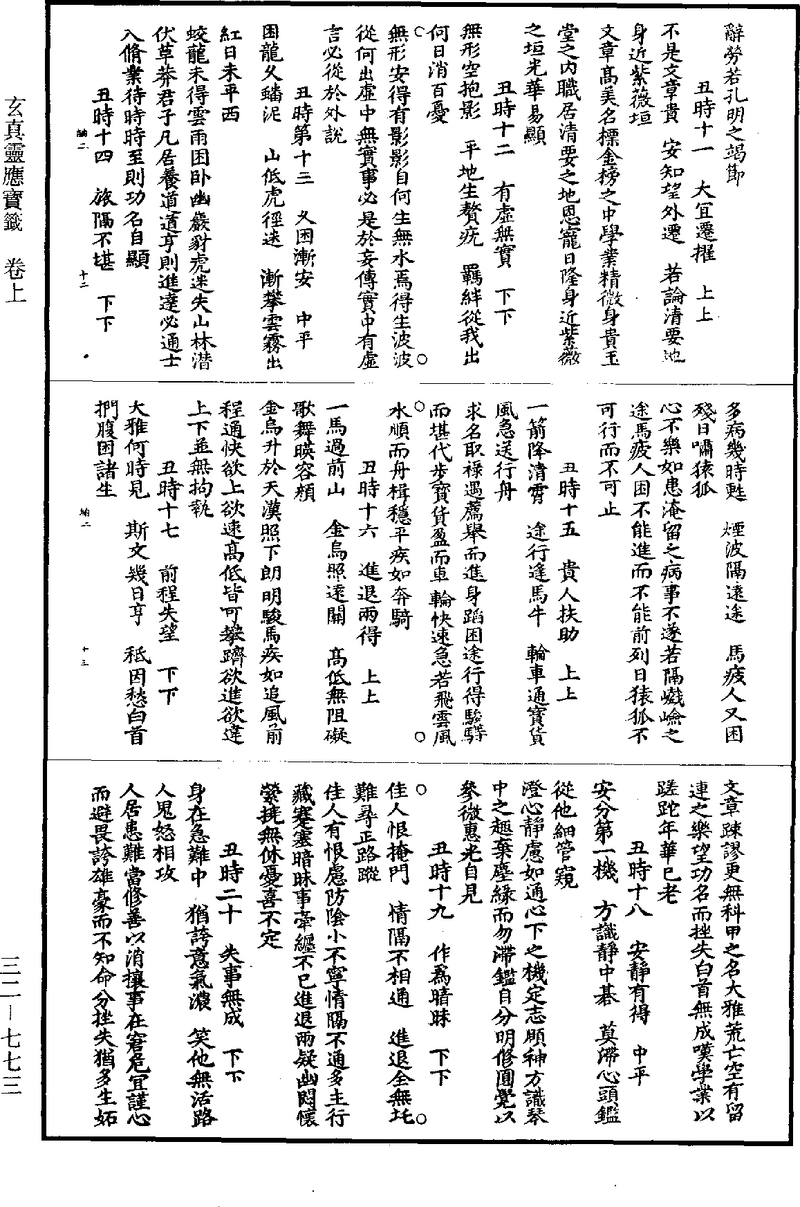 玄真靈應寶籤　卷上
三二—七七三
辭勞若孔明之竭節
丑時十一　大宜遷擢　上上
不是文章貴　安知望外遷　若論清要地
身近紫薇垣
文章髙美名標金榜之中學業精微身貴玉
堂之内職居清要之地恩寵日隆身近紫薇
之垣光華易顯
丑時十二　有虛無實　下下
無形空抱影　平地生贅疣　羈絆從我出
何日消百憂
無形安得有影影自何生無水焉得生波波
從何出虛中無實事必是於妄傳實中有虛
言必從於外說
丑時第十三　乂困漸安　中平
困龍久蟠泥　山低虎徑迷　漸攀雲霧出
紅日未平西
蛟龍未得雲雨困卧幽巖豺虎迷失山林潜
伏草莽君子凡居養道道亨則進達必通士
人脩業待時時至則功名自顯
丑時十四　旅隔不堪　下下
十二
多病幾時甦　煙波隔遠途　馬疲人又困
殘日嘯猿狐
心不樂如患淹留之病事不遂若隔巇嶮之
途馬疲人困不能進而不能前列日猿狐不
可行而不可止
丑時十五　貴人扶助　上上
一箭降清霄　途行逢馬牛　輪車通寶貨
風急送行舟
求名取祿遇薦舉而進身蹈困途行得駿驛
而堪代步寶貨盈而車輪快速急若飛雲風
水順而舟楫穩平疾如奔騎
丑時十六　進退兩得　上上
一馬過前山　金烏照遠關　髙低無阻礙
歌舞暎容顏
金烏升於天漢照下朗明駿馬疾如追風前
程通快欲上欲速髙低皆可攀躋欲進欲達
上下並無拘執
丑時十七　前程失望　下下
大雅何時見　斯文幾日亨　秪因愁白首
捫腹困諸生
十三
文章踈謬更無科甲之名大雅荒亡空有留
連之樂望功名而挫失白首無成嘆學業以
蹉跎年華已老
丑時十八　安靜有得　中平
安分第一機　方識靜中碁　莫滯心頭鑑
從他細管窺
澄心靜慮如通心下之機定志頤神方識琴
中之趣棄塵緣而勿滯鑑自分明修圓覺以
參微惠光自見
丑時十九　作為暗昧　下下
佳人恨掩門　情隔不相通　進退全無圫
難尋正路蹤
佳人有恨慮防陰小不寧情隔不通多主行
藏蹇塞暗昧事牽纏不已進退兩疑幽悶懷
縈撓無休憂喜不定
丑時二十　失事無成　下下
身在急難中　猶誇意氣濃　笑他無活路
人鬼怒相攻
人居患難當修善以消攘事在窘危宜謹心
而避畏誇雄豪而不知命分挫失猶多生妬